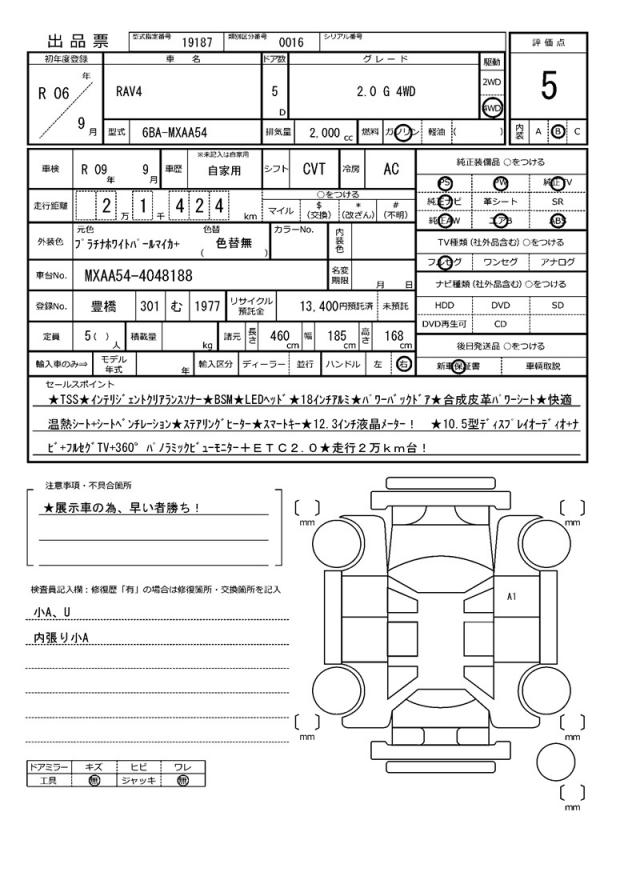 出品票 型式指定番号 19187 類別区分番号 0016 シリアル番号
評価点
5
初年度登録 車名 ドア数 グレード 駆動
R 06 年 9 月
RAV4 5 D 2.0 G 4WD
2WD
4WD
型式 6BA-MXAA54 排気量 2,000 cc 燃料 ガソリン 軽油 ( )
内装 A B C
車検 R 09 年 9 月 車歴 ※未記入は自家用 自家用 シフト CVT 冷房 AC
純正装備品 ○をつける
PS PW 純正TV
純正ナビ 革シート SR
純正AW エアB ABS
走行距離 2 万 1 千 4 2 4 km
○をつける
マイル $ (交換) * (改ざん) # (不明)
外装色 元色 ﾌﾟﾗﾁﾅﾎﾜｲﾄﾊﾟｰﾙﾏｲｶ+ 色替 ( 色替無 ) カラーNo. 内装色
TV種類 (社外品含む) ○をつける
フルセグ ワンセグ アナログ
車台No. MXAA54-4048188 名変期限 月 日
ナビ種類 (社外品含む) ○をつける
HDD DVD SD
DVD再生可 CD
登録No. 豊橋 301 む 1977 リサイクル預託金 13,400円預託済 未預託
定員 5( ) 人 積載量 kg 諸元 長さ 460 cm 幅 185 cm 高さ 168 cm
後日発送品 ○をつける
新車保証書 車輌取説
輸入車のみ⇒ モデル年式 年 輸入区分 ディーラー 並行 ハンドル 左 右
セールスポイント
★TSS★ｲﾝﾃﾘｼﾞｪﾝﾄｸﾘｱﾗﾝｽｿﾅｰ★BSM★LEDﾍｯﾄﾞ★18ｲﾝﾁｱﾙﾐ★ﾊﾟﾜｰﾊﾞｯｸﾄﾞｱ★合成皮革ﾊﾟﾜｰｼｰﾄ★快適
温熱ｼｰﾄ+ｼｰﾄﾍﾞﾝﾁﾚｰｼｮﾝ★ｽﾃｱﾘﾝｸﾞﾋｰﾀｰ★ｽﾏｰﾄｷｰ★12.3ｲﾝﾁ液晶ﾒｰﾀｰ！ ★10.5型ﾃﾞｨｽﾌﾟﾚｲｵｰﾃﾞｨｵ+ﾅ
ﾋﾞ+ﾌﾙｾｸﾞTV+360°ﾊﾟﾉﾗﾐｯｸﾋﾞｭｰﾓﾆﾀｰ＋ＥＴＣ２.０★走行２万ｋｍ台！
注意事項・不具合箇所
★展示車の為、早い者勝ち！
検査員記入欄：修復歴「有」の場合は修復箇所・交換箇所を記入
小A、U
内張り小A
ドアミラー キズ ヒビ ワレ
工具 無 ジャッキ 無
[ ] mm
[ ] mm
A1
[ ] mm
[ ] mm
[ ] mm